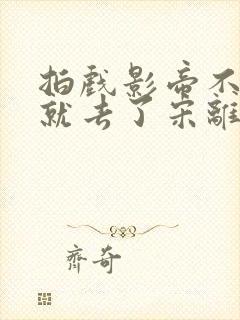 拍戏影帝不
就去了宋離
齊奇